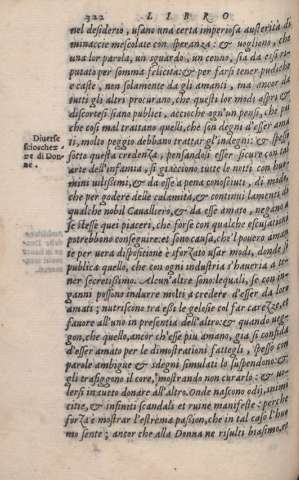 322 LIBRO
nel desiderio, usano una certa imperiosa austerità di
minaccie mescolate con speranza: & vogliono, che
una lor parola, un sguardo, un cenno, sia da essi ri-
putato per somma felicità: & per farsi tener pudiche
e caste, non solamente da gli amanti, ma ancor da
tutti gli altri procurano, che questi lor modi aspri &
discortesi siano publici, accioche ogn'un pensi, che poi
che così mal trattano quelli, che son degni d'esser ama
ti, molto peggio debbano trattar gl'indegni: & spesso
sotto questa credenza, pensandosi esser sicure con tal
arte dell'infamia, si giacciono tutte le notti con huo-
mini vilissimi, & da esse a pena conosciuti, di modo,
che per godere delle calamità, & continui lamenti di
qualche nobil Cavalliero, & da esse amato, negano à
se stesse quei piaceri, che forse con qualche escusatione
potrebbono conseguire. et sono causa, che'l povero aman
te per vera disperatione è sforzato usar modi, donde si
publica quello, che con ogni industria s'haveria a te-
ner secretissimo. Alcun'altre sono: lequali, se con in-
ganni possono indurre molti a credere d'esser da loro
amati; nutriscono tra essi le gelosie col far carezze, et
favore all'uno in presentia dell'altro: & quando veg-
gon, che quello, ancor ch'esse più amano, gia si confida
d'esser amato per le dimostrationi fattegli, spesso con
parole ambigue & sdegni simulati lo suspendono: &
gli trafiggono il core, mostrando non curarlo: & vo-
lersi in tutto donare all'altro. Onde nascono odij, inimi
citie, & infiniti scandali et ruine manifeste: perche
forza è mostrar l'estrema passion, che in tal caso l'huo
mo sente; ancor che alla Donna ne risulti biasimo, et
Diverse
sciocchez-
ze di Don-
ne.